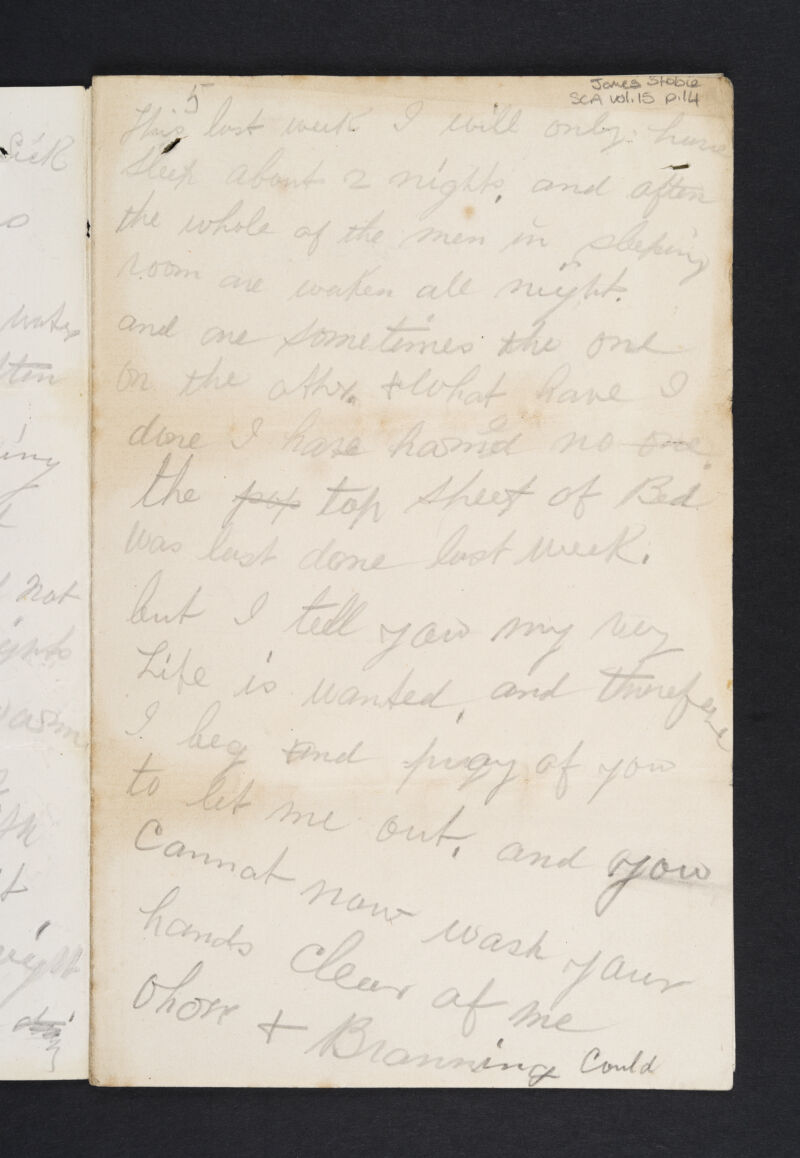 James Stobie
SCA vol.15 p.14
5
This last week I will only have
sleep about 2 nights, and often
the whole of the men in sleeping
room are waken all night.
and are sometimes the one
on the other. & What have I
done I have harmd no one.
the top sheet of Bed
was last done last week.
but I tell you my very
Life is wanted, and therefore
I beg and of you
to let me out, and you
Cannot now wash your
hands clear of me
& Branning Could
Sick
water
Not